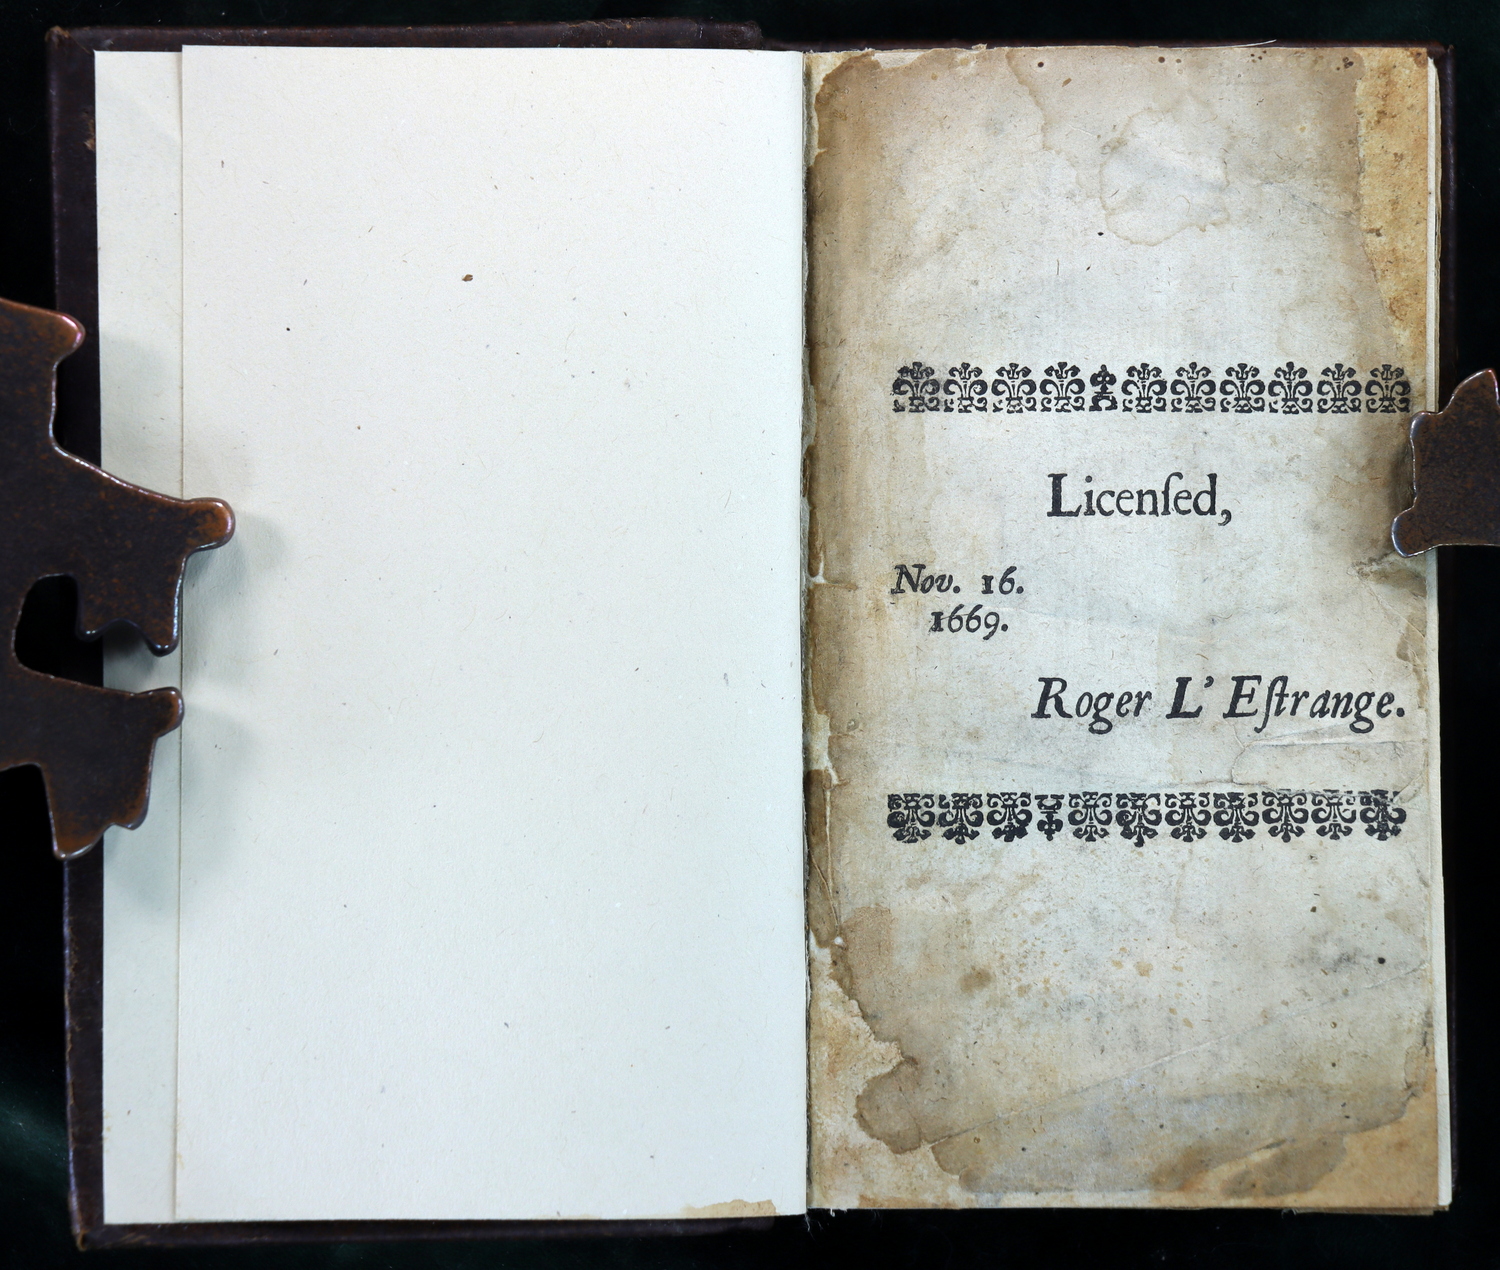 Licenſed,
Nov. 16.
1669.
Roger L' Eſtrange.